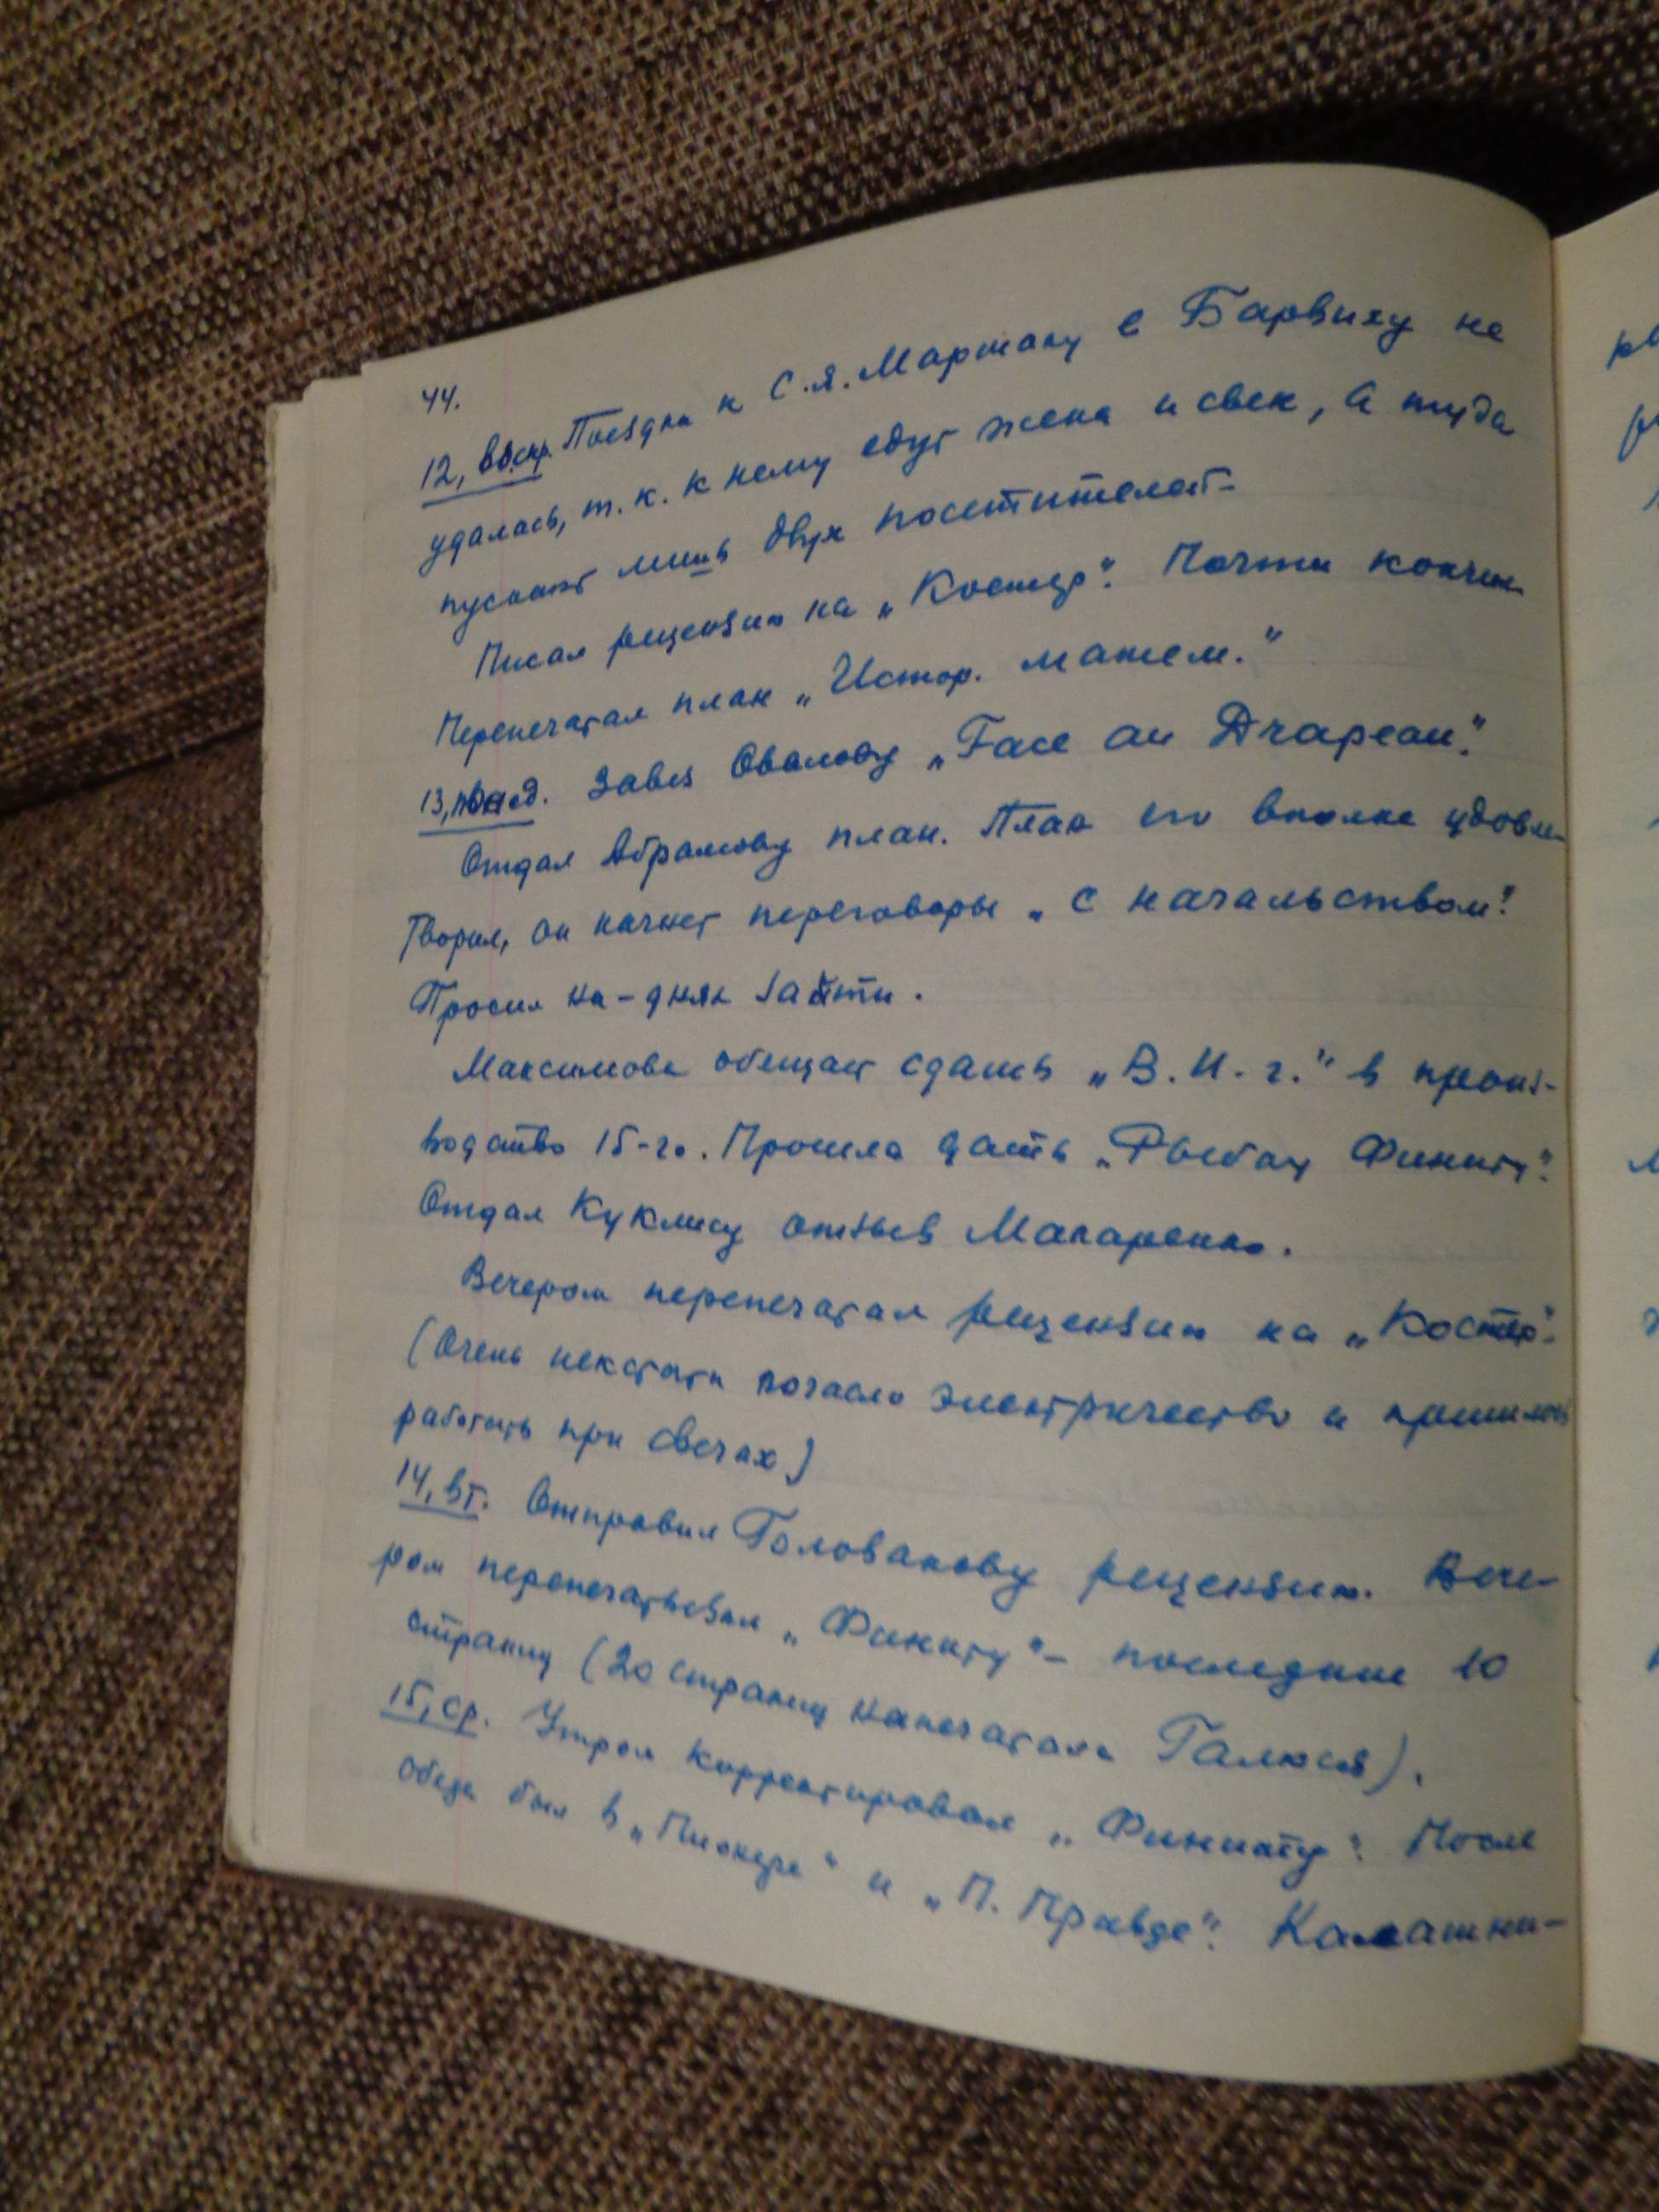 44.
12, воскр. Поездка к С.Я. Маршаку в Барвиху не
удалась, т. к. к нему едут жена и свек, а туда
пускают лишь двух посетителей.
Писал рецензию на „Костер“. Почти кончил.
Перепечатал план „Истор. матем.“
13, понед. Завез Овалову „Face au Drapeau“.
Отдал Абрамову план. План его вполне удовле-
творил, он начнет переговоры „с начальством“.
Просил на-днях зайти.
Максимова обещает сдать „В. И. г.“ в произ-
водство 15-го. Просила дать „Рыбау Финиту“.
Отдал Куклису отзыв Макаренко.
Вечером перепечатал рецензию на „Костер“.
(Очень некстати погасло электричество и пришлось
работать при свечах)
14, вт. Отправил Голованову рецензию. Вече-
ром перепечатывал „Финиту“ – последние 10
страниц (20 страниц напечатала Галюся).
15, ср. Утром корректировал „Финиту“. После
обеда был в „Пионере“ и „П. Правде“. Калашни-